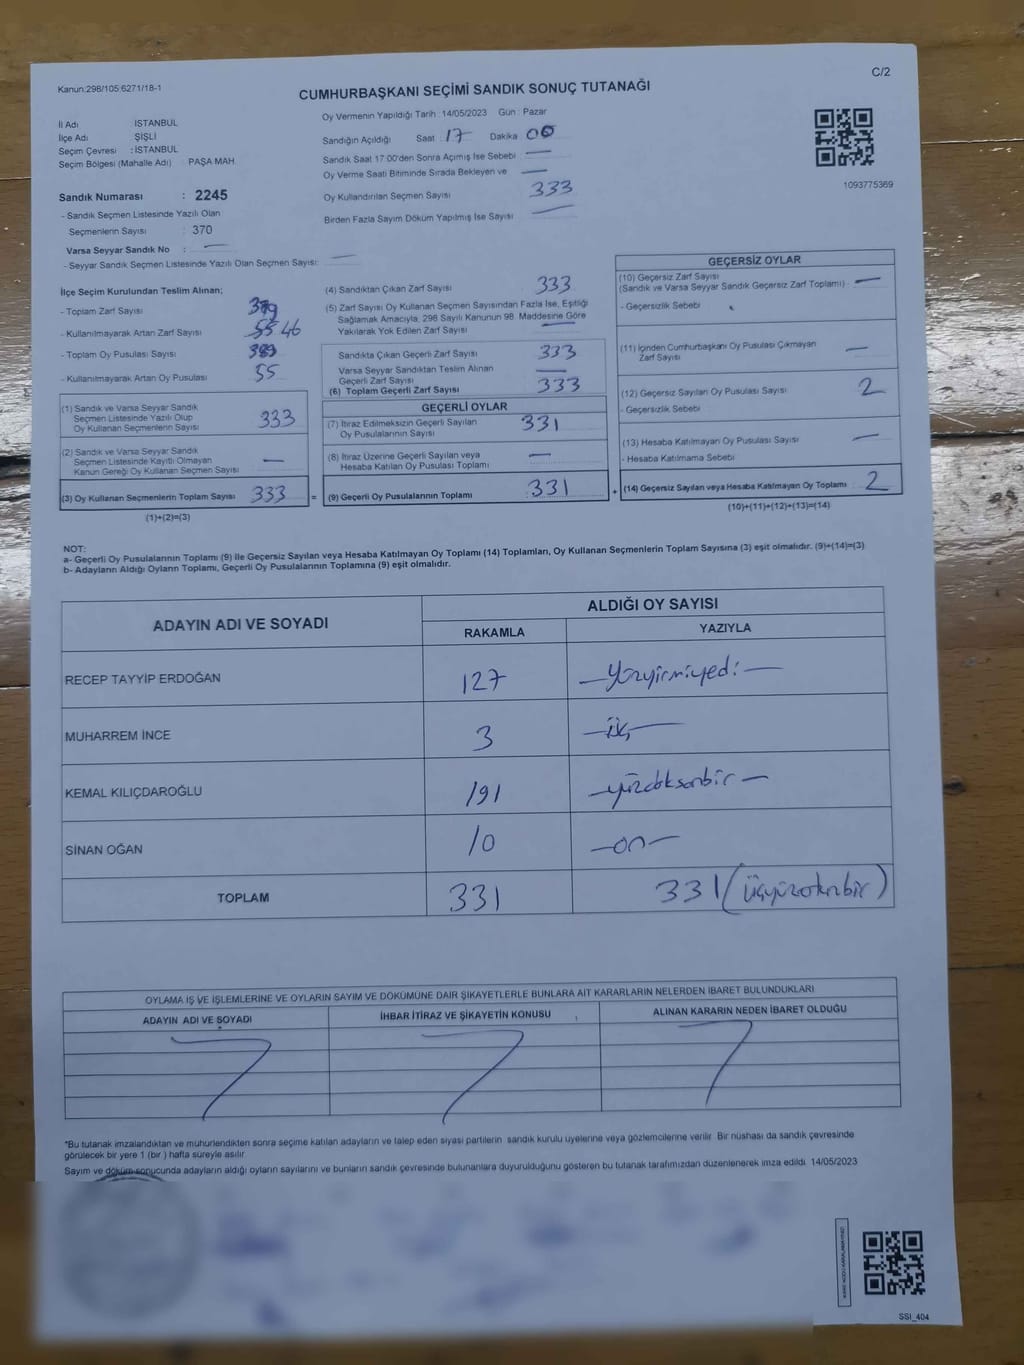 C/2
Kanun:298/105,6271/18-1
CUMHURBAŞKANI SEÇİMİ SANDIK SONUÇ TUTANAĞI
İl Adı İSTANBUL
İlçe Adı ŞİŞLİ
Seçim Çevresi : İSTANBUL
Seçim Bölgesi (Mahalle Adı) : PAŞA MAH.
Sandık Numarası : 2245
- Sandık Seçmen Listesinde Yazılı Olan
Seçmenlerin Sayısı : 370
Varsa Seyyar Sandık No : —
- Seyyar Sandık Seçmen Listesinde Yazılı Olan Seçmen Sayısı: —
Oy Vermenin Yapıldığı Tarih : 14/05/2023 Gün : Pazar
Sandığın Açıldığı Saat 17 Dakika 00
Sandık Saat 17:00'den Sonra Açılmış İse Sebebi —
Oy Verme Saati Bitiminde Sırada Bekleyen ve —
Oy Kullandırılan Seçmen Sayısı 333
Birden Fazla Sayım Döküm Yapılmış İse Sayısı —
1093775369
İlçe Seçim Kurulundan Teslim Alınan;
- Toplam Zarf Sayısı
- Kullanılmayarak Artan Zarf Sayısı 55 46
- Toplam Oy Pusulası Sayısı
- Kullanılmayarak Artan Oy Pusulası 55
(1) Sandık ve Varsa Seyyar Sandık
Seçmen Listesinde Yazılı Olup
Oy Kullanan Seçmenlerin Sayısı 333
(2) Sandık ve Varsa Seyyar Sandık
Seçmen Listesinde Kayıtlı Olmayan
Kanun Gereği Oy Kullanan Seçmen Sayısı —
(3) Oy Kullanan Seçmenlerin Toplam Sayısı 333 =
(1)+(2)=(3)
(4) Sandıktan Çıkan Zarf Sayısı 333
(5) Zarf Sayısı Oy Kullanan Seçmen Sayısından Fazla İse, Eşitliği
Sağlamak Amacıyla, 298 Sayılı Kanunun 98. Maddesine Göre
Yakılarak Yok Edilen Zarf Sayısı —
Sandıkta Çıkan Geçerli Zarf Sayısı 333
Varsa Seyyar Sandıktan Teslim Alınan
Geçerli Zarf Sayısı —
(6) Toplam Geçerli Zarf Sayısı 333
GEÇERLİ OYLAR
(7) İtiraz Edilmeksizin Geçerli Sayılan
Oy Pusulalarının Sayısı 331
(8) İtiraz Üzerine Geçerli Sayılan veya
Hesaba Katılan Oy Pusulası Toplamı —
(9) Geçerli Oy Pusulalarının Toplamı 331 +
GEÇERSİZ OYLAR
(10) Geçersiz Zarf Sayısı
(Sandık ve Varsa Seyyar Sandık Geçersiz Zarf Toplamı) : —
- Geçersizlik Sebebi :
(11) İçinden Cumhurbaşkanı Oy Pusulası Çıkmayan
Zarf Sayısı —
(12) Geçersiz Sayılan Oy Pusulası Sayısı 2
- Geçersizlik Sebebi
(13) Hesaba Katılmayan Oy Pusulası Sayısı —
- Hesaba Katılmama Sebebi
(14) Geçersiz Sayılan veya Hesaba Katılmayan Oy Toplamı : 2
(10)+(11)+(12)+(13)=(14)
NOT:
a- Geçerli Oy Pusulalarının Toplamı (9) ile Geçersiz Sayılan veya Hesaba Katılmayan Oy Toplamı (14) Toplamları, Oy Kullanan Seçmenlerin Toplam Sayısına (3) eşit olmalıdır. (9)+(14)=(3)
b- Adayların Aldığı Oyların Toplamı, Geçerli Oy Pusulalarının Toplamına (9) eşit olmalıdır.
ADAYIN ADI VE SOYADI
ALDIĞI OY SAYISI
RAKAMLA YAZIYLA
RECEP TAYYİP ERDOĞAN 127 —yüzyirmiyedi—
MUHARREM İNCE 3 —üç—
KEMAL KILIÇDAROĞLU 191 —yüzdoksanbir—
SİNAN OĞAN 10 —on—
TOPLAM 331 331 (üçyüzotuzbir)
OYLAMA İŞ VE İŞLEMLERİNE VE OYLARIN SAYIM VE DÖKÜMÜNE DAİR ŞİKAYETLERLE BUNLARA AİT KARARLARIN NELERDEN İBARET BULUNDUKLARI
ADAYIN ADI VE SOYADI İHBAR İTİRAZ VE ŞİKAYETİN KONUSU ALINAN KARARIN NEDEN İBARET OLDUĞU
*Bu tutanak imzalandıktan ve mühürlendikten sonra seçime katılan adayların ve talep eden siyasi partilerin sandık kurulu üyelerine veya gözlemcilerine verilir. Bir nüshası da sandık çevresinde
görülecek bir yere 1 (bir ) hafta süreyle asılır.
Sayım ve döküm sonucunda adayların aldığı oyların sayılarını ve bunların sandık çevresinde bulunanlara duyurulduğunu gösteren bu tutanak tarafımızdan düzenlenerek imza edildi. 14/05/2023
SSİ_404